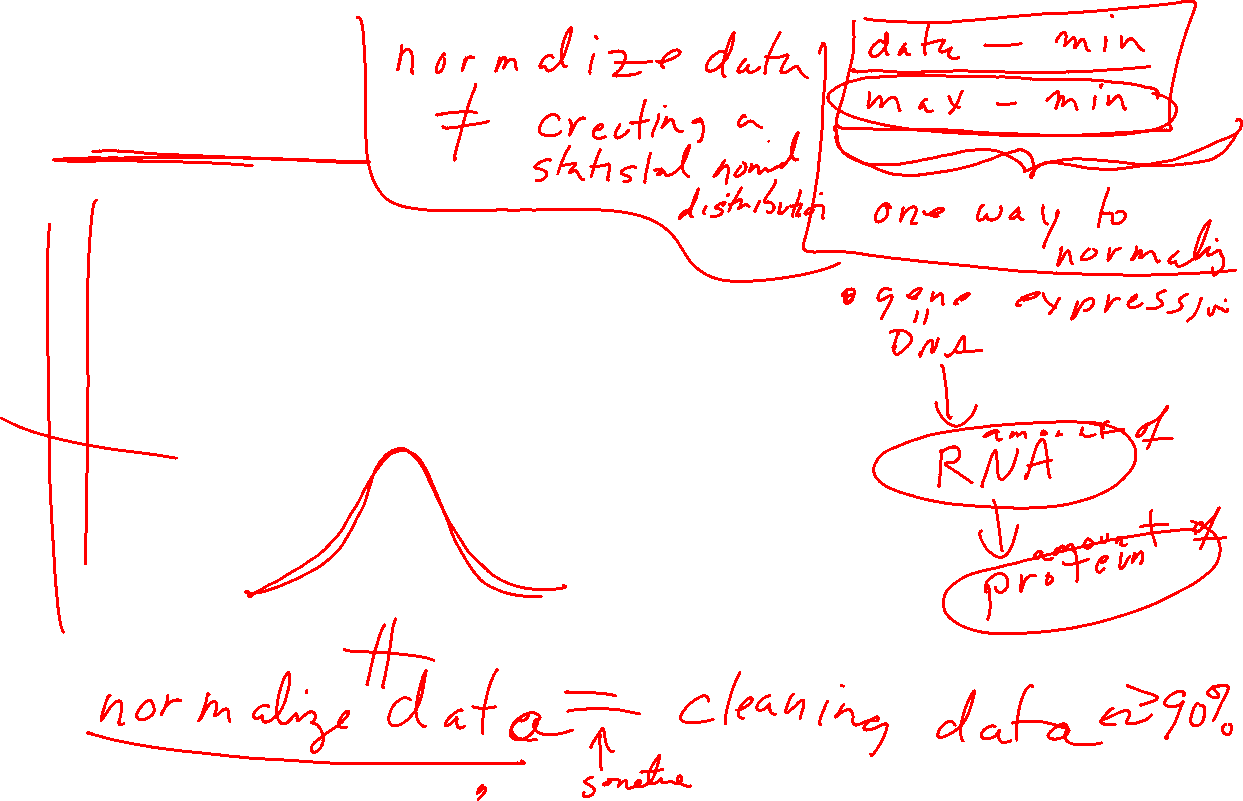 normalize data
≠ creating a
statistal nomal
distribution
data - min
max - min
one way to
normaliz
• gene expression
=
DNA
amount of
RNA
amount of
protein
≠
normalize data = cleaning data ~90%
↑